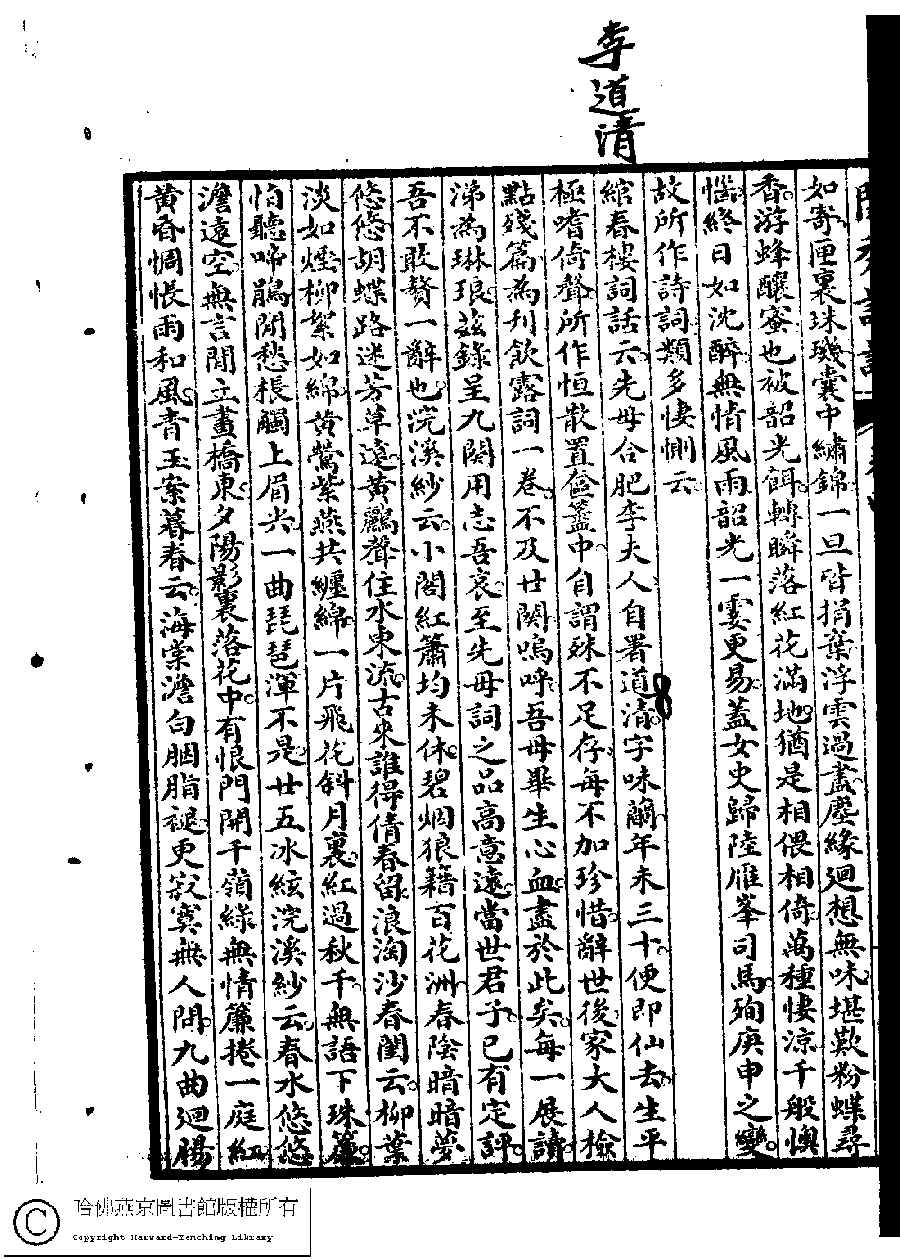 李道清
如寄匣裏珠璣囊中繡錦一旦皆捐棄浮雲過盡塵緣廻想無味堪歎粉蝶尋
香游蜂釀蜜也被韶光餌轉瞬落紅花滿地猶是相偎相倚萬種悽涼千般懊
惱終日如沈醉無情風雨韶光一霎更易蓋女史歸陸雁峯司馬殉庚申之變
故所作詩詞類多悽惻云
綰春樓詞話云先母合肥李夫人自署道清字味蘭年未三十便即仙去生平
極嗜倚聲所作恒散置奩簏中自謂殊不足存每不加珍惜辭世後家大人檢
點殘篇為刊飲露詞一卷不及廿闋嗚呼吾母畢生心血盡於此矣每一展讀
涕為琳琅茲錄呈九闋用志吾哀至先母詞之品高意遠當世君子已有定評
吾不敢贅一辭也浣溪紗云小閣紅簫均未休碧烟狼籍百花洲春陰暗暗夢
悠悠胡蝶路迷芳草遠黃鸝聲住水東流古來誰得倩春留浪淘沙春閨云柳葉
淡如煙柳絮如綿黃鶯紫燕共纏綿一片飛花斜月裏紅過秋千無語下珠簾
怕聽啼鵑閒愁棖觸上眉尖一曲琵琶渾不是廿五冰絃浣溪紗云春水悠悠
澹遠空無言閒立畫橋東夕陽影裏落花中有恨門開千嶺綠無情簾捲一庭紅
黃昏惆悵雨和風青玉案暮春云海棠澹白胭脂褪更寂寞無人問九曲迴腸
8
哈佛燕京圖書館版權所有
Copyright Harvard-Yenching Library